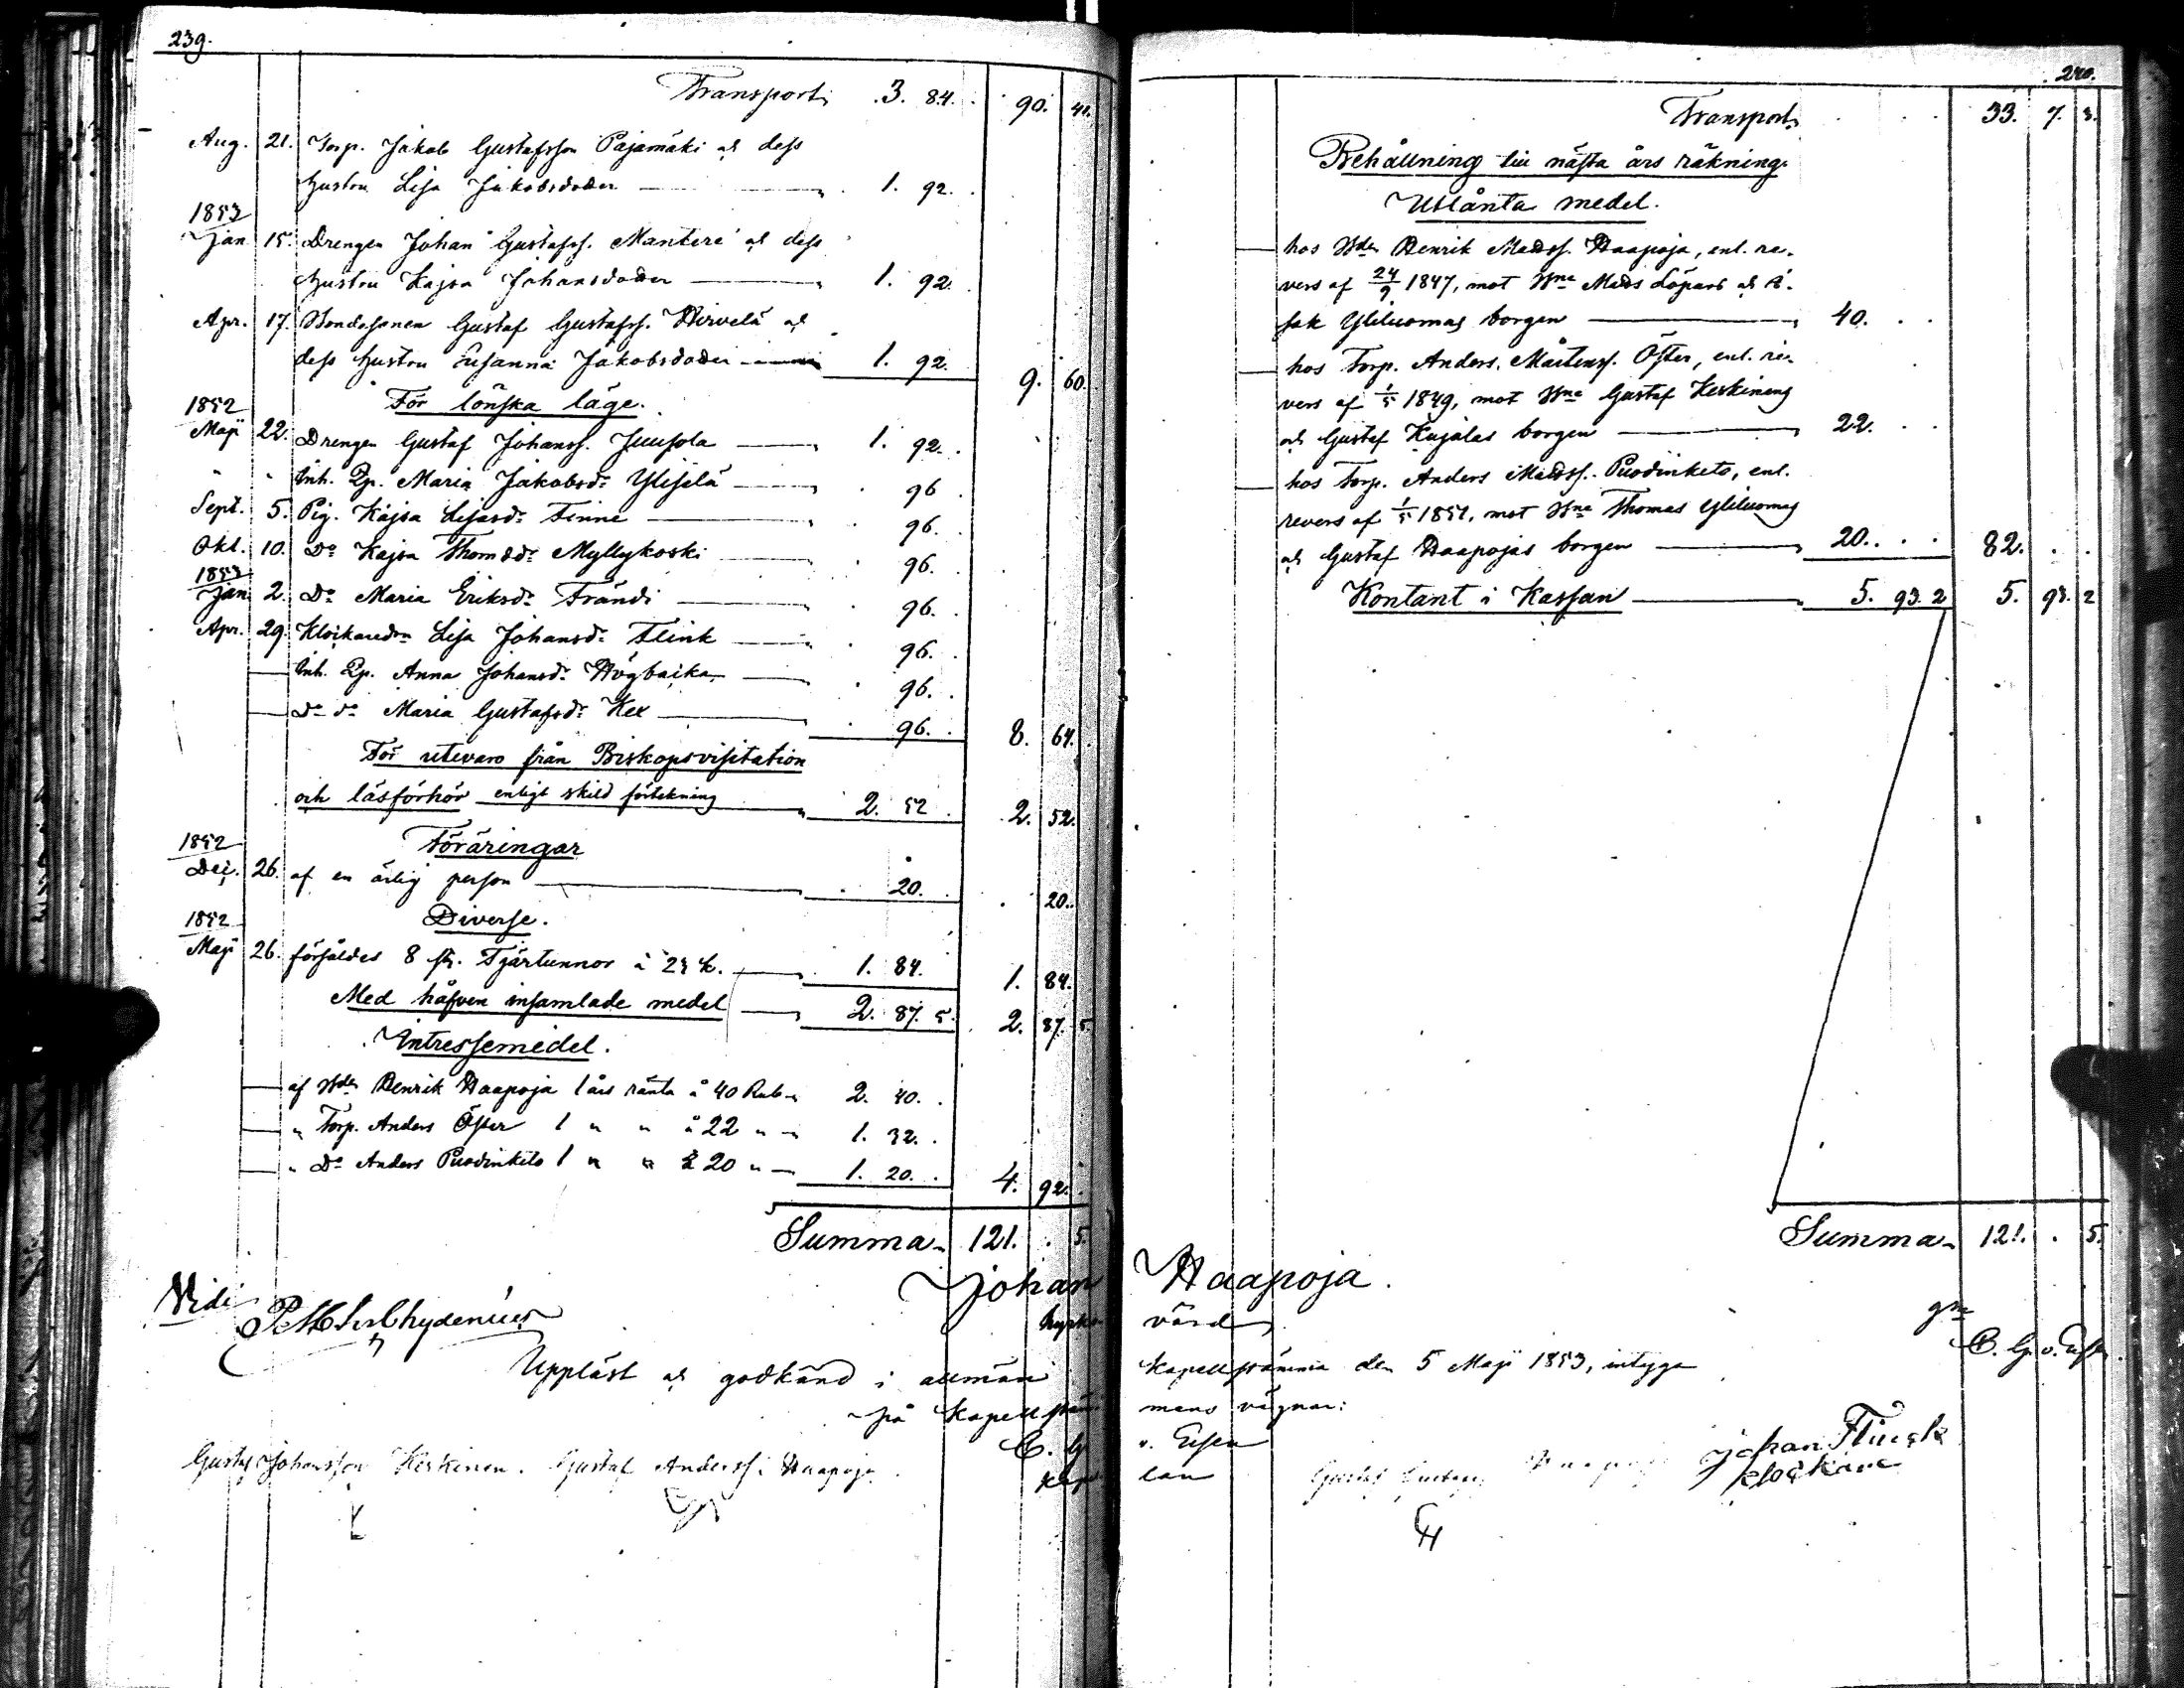 239.
Transport 3. 84. 90. 41.
Aug. 21. Torp. Jakob Gustafsson Pajamäki och dess
hustru Lisa Jakobsdoder 1. 92.
1853
Jan 15. Drengen Johan Gustafss. Mantere och dess
hustru Kajsa Johansdoder 1. 92.
Apr. 17. Bondesonen Gustaf Gustafss. Hirvelä och
dess hustru Susanna Jakobsdoder 1. 92. 9. 60.
För lönska läge.
1852
Maji 22. Drengen Gustaf Johanss. Juusola 1. 92.
" " Inh. Qp. Maria Jakobsdr Yliselä 96
Sept. 5. Pig. Kajsa Lisasdr Finne 96.
Okt. 10. Do Kajsa Thomsdr Myllykoski 96.
1853
Jan 2. Do Maria Eriksdr Frändi 96.
Apr. 29. Klåckaredrn Lisa Johansdr Flink 96.
Inh. Qp. Anna Johansdr Högbacka 96.
Do do Maria Gustafsdr Kex 96. 8. 64.
För utevaro från Biskopsvisitation
och läsförhör enligt skild förtekning 2. 52 2. 52.
Föräringar
1852
Dec. 26. af en ärlig person 20. 20.
Diverse.
1852
Maji 26. försåldes 8 st. Tjärtunnor à 23 k. 1. 84. 1. 84.
Med håfven insamlade medel 2. 87. 5. 2. 87. 5.
Intressemedel.
af Bdn Henrik Haapoja 1 års ränta å 40 Rub 2. 40.
" Torp. Anders Öster 1 " " å 22 " 1. 32.
" Do Anders Puodinketo 1 " " å 20 " 1. 20. 4. 92.
Summa 121. . 5.
Vidi
Chydenius
240.
Transport 33. 7. 3.
Behållning till nästa års räkning.
Utlånta medel.
hos Bdn Henrik Madss. Haapoja, enl. re-
vers af 24/9 1847, mot Bne Mads Löpars och I-
sak Yliluomas borgen 40.
hos Torp. Anders Mårtenss. Öster, enl. re-
vers af 1/5 1849, mot Bne Gustaf Keskinens
och Gustaf Kujalas borgen 22.
hos Torp. Anders Madss. Puodinketo, enl.
revers af 1/5 1851, mot Bne Thomas Yliluomas
och Gustaf Haapojas borgen 20. 82.
Kontant i Kassan 5. 93. 2 5. 93. 2
Summa 121. . 5.
Johan Haapoja.
kyrko värd
Uppläst och godkänd i allmän kapellstämma den 5 Maji 1853, intyga
på Kapellstäm mans vägnar:
C. G. v. Essen
kap lan
Gustaf Johansson Keskinen. Gustaf Anderss. Haapoja
Johan Flinck
klockare